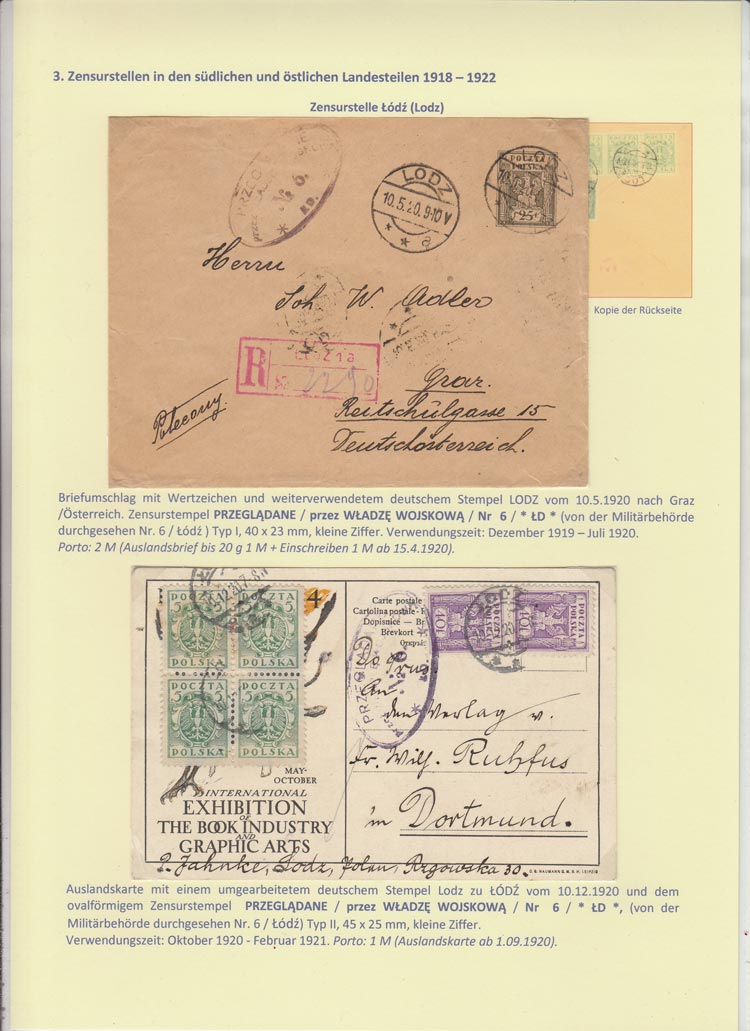 3. Zensurstellen in den südlichen und östlichen Landesteilen 1918 – 1922
Zensurstelle Łódź (Lodz)
№ 6.
ŁD.
LODZ
10.5.20.9-10V
* * a
POCZTA
POLSKA
25 F
Kopie der Rückseite
Herrn
Joh W. Adler
R Łódź 1a
№ 2290
Graz.
Polecony
Reitschulgasse 15
Deutschösterreich.
Briefumschlag mit Wertzeichen und weiterverwendetem deutschem Stempel LODZ vom 10.5.1920 nach Graz
/Österreich. Zensurstempel PRZEGLĄDANE / przez WŁADZĘ WOJSKOWĄ / Nr 6 / * ŁD * (von der Militärbehörde
durchgesehen Nr. 6 / Łódź ) Typ I, 40 x 23 mm, kleine Ziffer. Verwendungszeit: Dezember 1919 – Juli 1920.
Porto: 2 M (Auslandsbrief bis 20 g 1 M + Einschreiben 1 M ab 15.4.1920).
5 POCZTA 5 POLSKA
5 POCZTA 5 POLSKA
5 POCZTA 5 POLSKA
5 POCZTA 5 POLSKA
4
Carte postale
Cartolina postale
Dopisnice
Brevkort
POCZTA POLSKA 10
POCZTA POLSKA 10
№ 6
An
den Verlag v.
Fr. Wilh. Ruhfus
in Dortmund.
MAY-
OCTOBER
INTERNATIONAL
EXHIBITION
OF
THE BOOK INDUSTRY
AND
GRAPHIC ARTS
Jahnke, Lodz, Polen, Rzgowska 30.
Auslandskarte mit einem umgearbeitetem deutschem Stempel Lodz zu ŁÓDŹ vom 10.12.1920 und dem
ovalförmigem Zensurstempel PRZEGLĄDANE / przez WŁADZĘ WOJSKOWĄ / Nr 6 / * ŁD *, (von der
Militärbehörde durchgesehen Nr. 6 / Łódź) Typ II, 45 x 25 mm, kleine Ziffer.
Verwendungszeit: Oktober 1920 - Februar 1921. Porto: 1 M (Auslandskarte ab 1.09.1920).